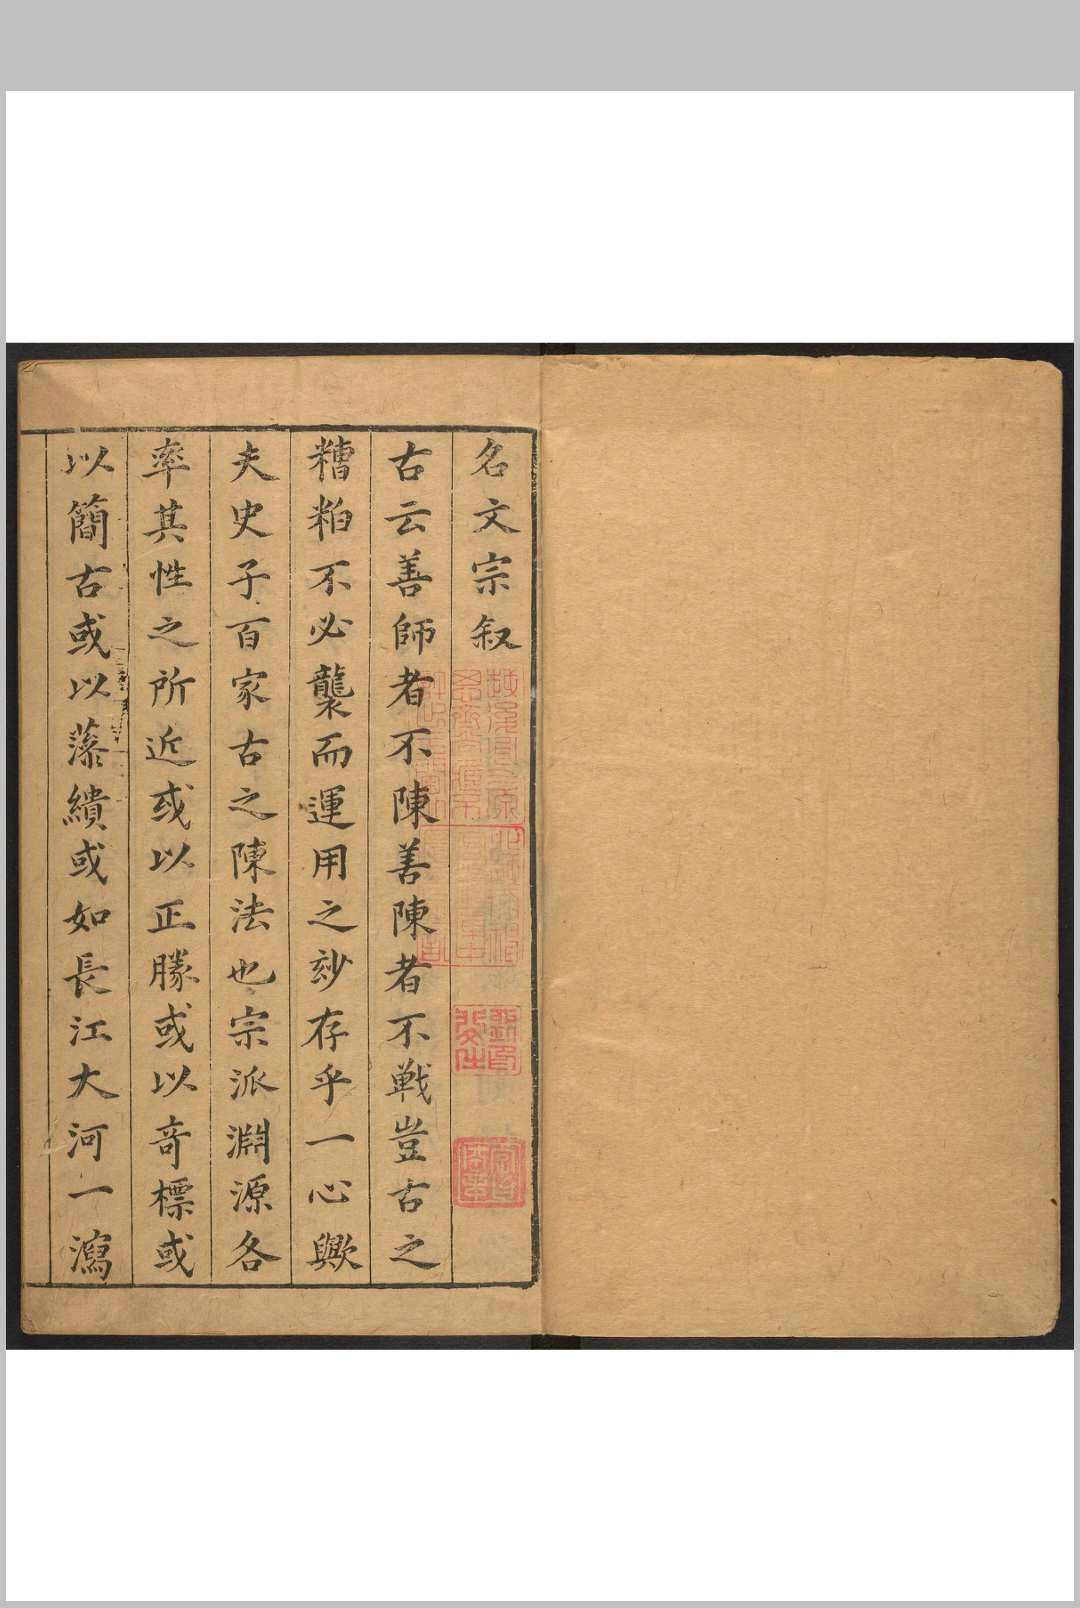 名文宗叙
古云善師者不陳善陳者不戦豈古之
糟粕不必襲而運用之玅存乎一心歟
夫史子百家古之陳法也宗派淵源各
率其性之所近或以正勝或以竒標或
以簡古或以藻繢或如長江大河一瀉